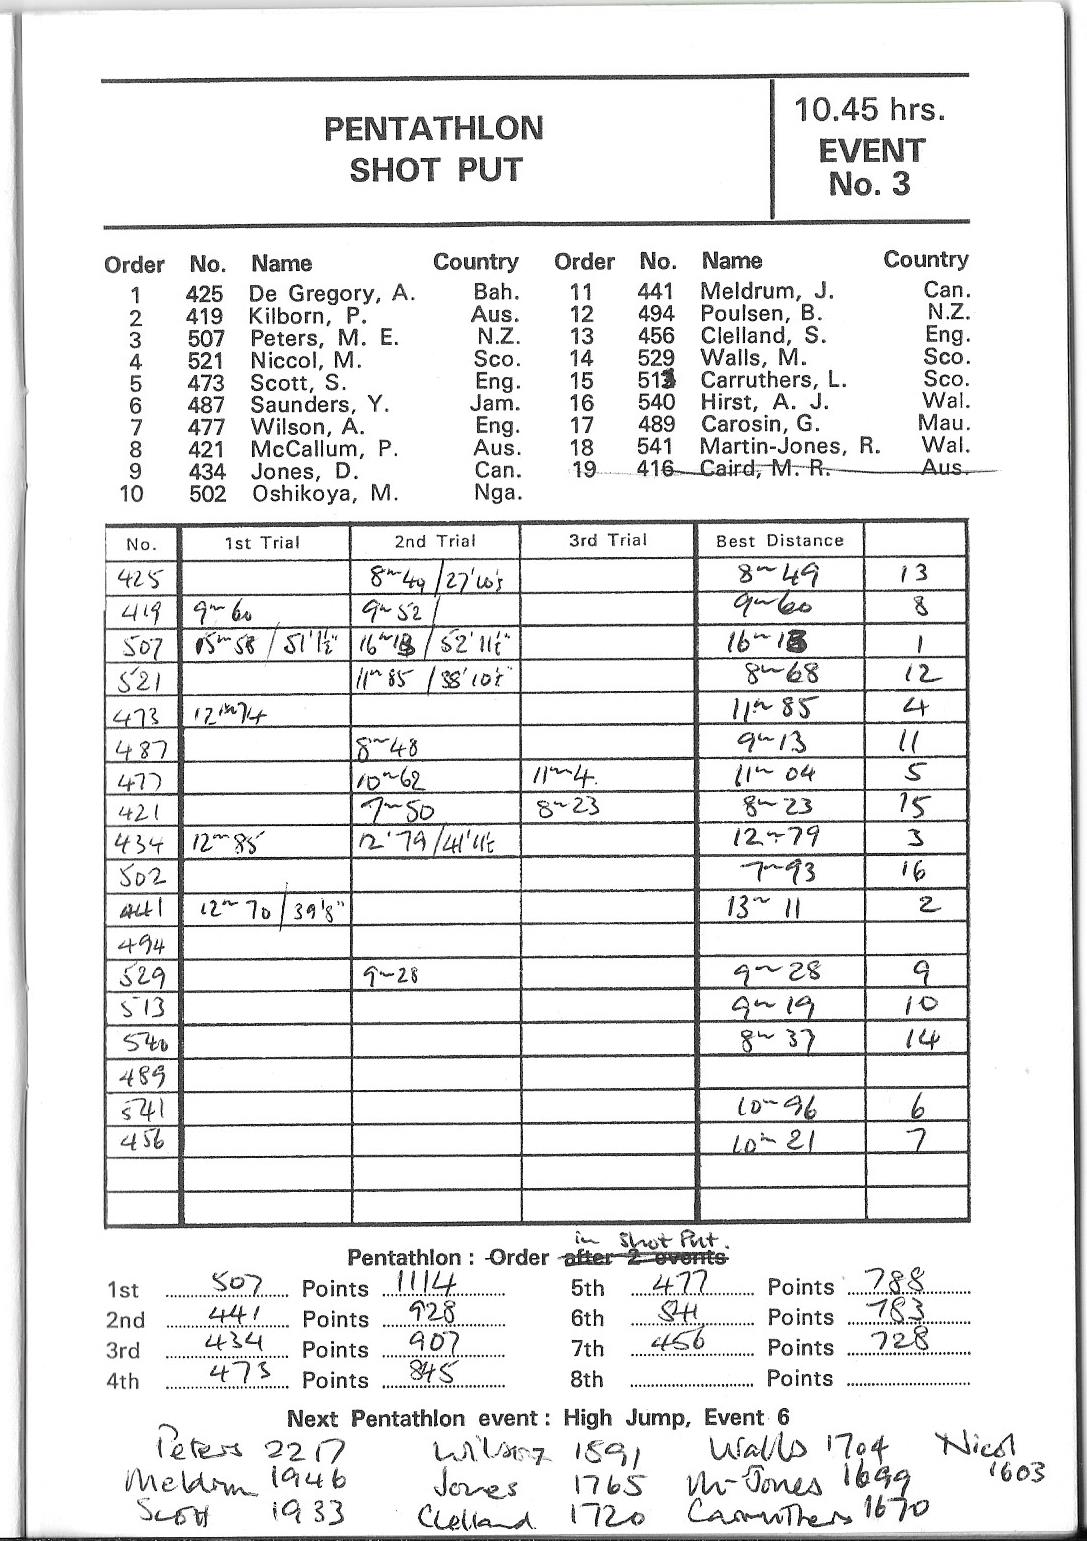 PENTATHLON
SHOT PUT
10.45 hrs.
EVENT
No. 3
Order No. Name Country Order No. Name Country
1 425 De Gregory, A. Bah. 11 441 Meldrum, J. Can.
2 419 Kilborn, P. Aus. 12 494 Poulsen, B. N.Z.
3 507 Peters, M. E. N.Z. 13 456 Clelland, S. Eng.
4 521 Niccol, M. Sco. 14 529 Walls, M. Sco.
5 473 Scott, S. Eng. 15 513 Carruthers, L. Sco.
6 487 Saunders, Y. Jam. 16 540 Hirst, A. J. Wal.
7 477 Wilson, A. Eng. 17 489 Carosin, G. Mau.
8 421 McCallum, P. Aus. 18 541 Martin-Jones, R. Wal.
9 434 Jones, D. Can. 19 416 Caird, M. R. Aus.
10 502 Oshikoya, M. Nga.
No. 1st Trial 2nd Trial 3rd Trial Best Distance
425 8m 49 / 27'10¼" 8m 49 13
419 9m 60 9m 52 / 9m 60 8
507 15m 58 / 51'1½" 16m 13 / 52'11½" 16m 13 1
521 11m 85 / 38'10½" 8m 68 12
473 12m 74 11m 85 4
487 8m 48 9m 13 11
477 10m 62 11m 4. 11m 04 5
421 7m 50 8m 23 8m 23 15
434 12m 85 12'79 / 41'11½ 12m 79 3
502 7m 93 16
441 12m 70 / 39'8" 13m 11 2
494
529 9m 28 9m 28 9
513 9m 19 10
540 8m 37 14
489
541 10m 96 6
456 10m 21 7
Pentathlon : Order after 2 events in Shot Put.
1st 507 Points 1114 5th 477 Points 788
2nd 441 Points 928 6th 541 Points 783
3rd 434 Points 907 7th 456 Points 728
4th 473 Points 845 8th Points
Next Pentathlon event : High Jump, Event 6
Peters 2217 Wilson 1891 Walls 1704 Nicol 1603
Meldrum 1946 Jones 1765 M-Jones 1699
Scott 1933 Clelland 1720 Carruthers 1670